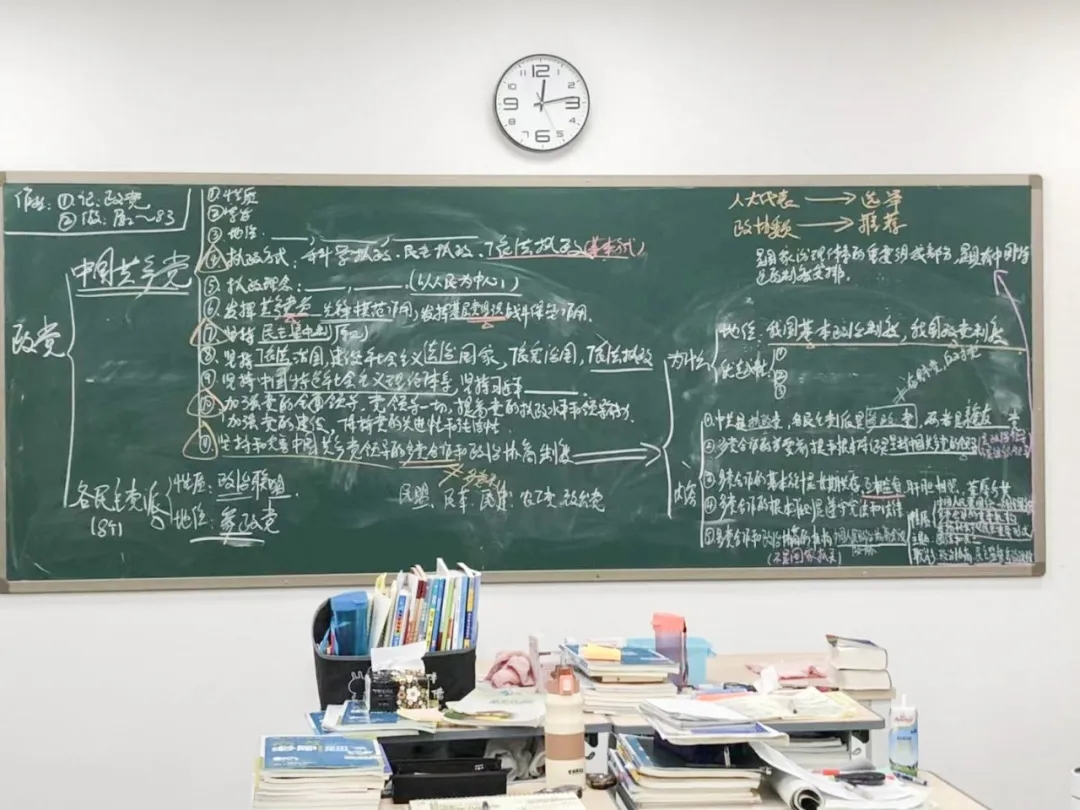 12
11
1
10
2
9
3
8
4
7
5
6
作业: ①记:政党
② 做:
~83
政党
中国共产党
①性质
②宗旨
③ 地位:
④ 执政方式: 科学执政. 民主执政. 依法执政(基本方式)
⑤ 执政理念: (以人民为中心)
⑥ 发挥党员先锋模范作用, 发挥基层党组织战斗堡垒作用.
⑦ 坚持民主集中制
⑧ 坚持依法治国, 建设社会主义法治国家, 依宪治国, 依法执政
⑨ 坚持中国特色社会主义理论体系, 坚持
⑩ 加强党的全面领导, 党领导一切, 提高党的执政水平和领导能力
加强党的建设, 保持党的先进性和纯洁性
⑪ 坚持和完善中国共产党领导的多党合作和政治协商制度
各民主党派
(8个)
性质: 政治联盟.
地位: 参政党
民盟、民革、民建、农工党、致公党
人大代表 → 选举
政协委员 → 推荐
是国家治理体系的重要组成部分, 是具有中国特色的制度安排.
地位: 我国基本政治制度, 我国政党制度
优越性:
①
②
③
内容
①中共是执政党, 各民主党派是参政党, 两者是亲密友党
②多党合作的首要前提和根本保证是坚持中国共产党的领导
③多党合作的基本方针是长期共存, 互相监督, 肝胆相照, 荣辱与共
④多党合作的根本活动准则是遵守宪法和法律
⑤多党合作和政治协商的机构:
(不是国家机关)